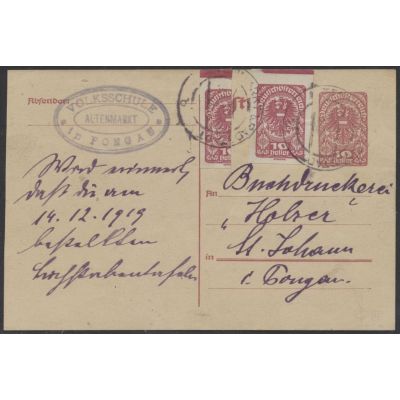 Absender
VOLKSSCHULE
ALTENMARKT
in PONGAU
Deutschösterreich
10
Heller
10
Heller
10
Heller
Wird erinnert,
daß die am
14.12.1919
bestellten
An
Buchdruckerei
„Holzer"
St. Johann
in
i. Pongau.